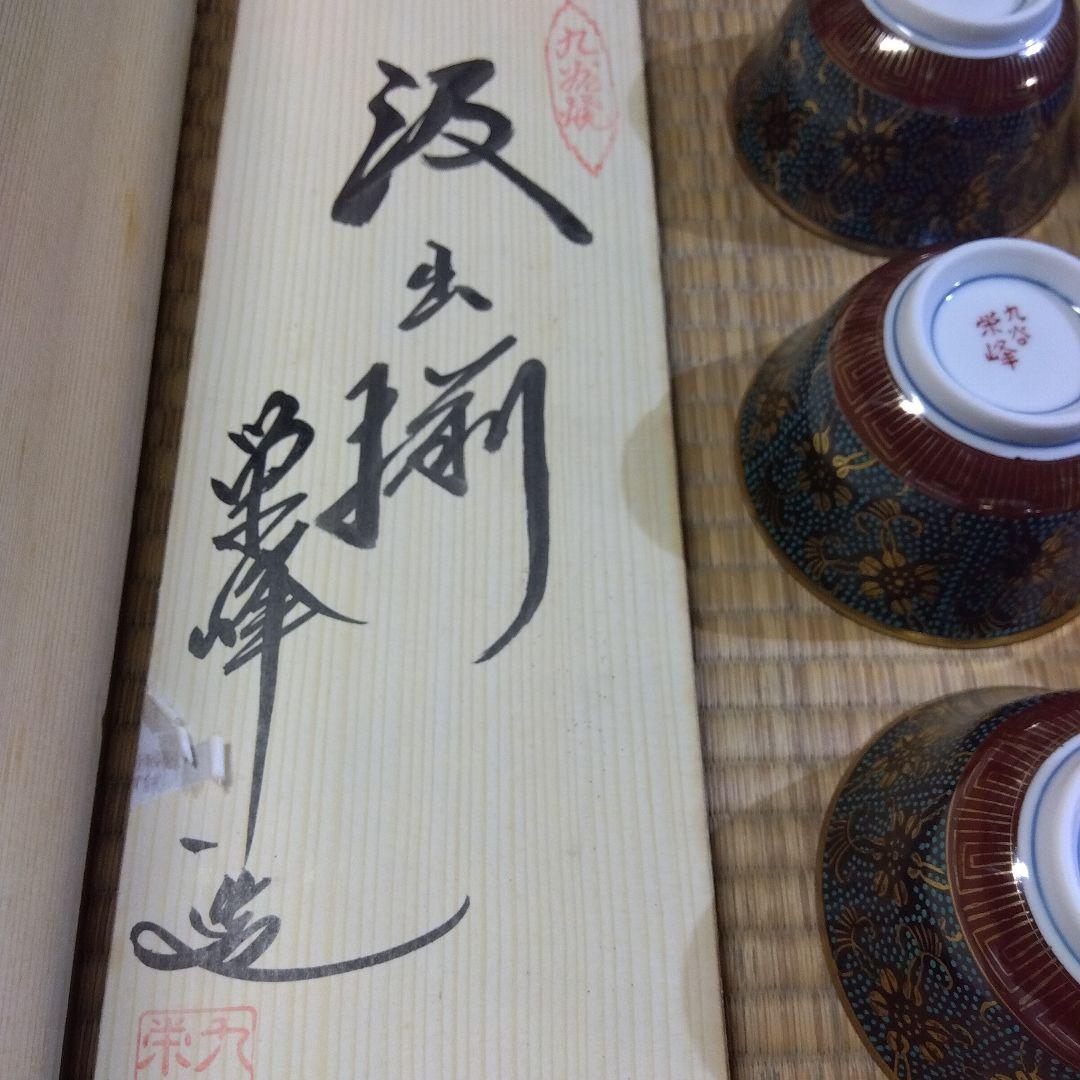 九谷焼
汲出揃
栄峰造
九
栄
九谷
栄峰